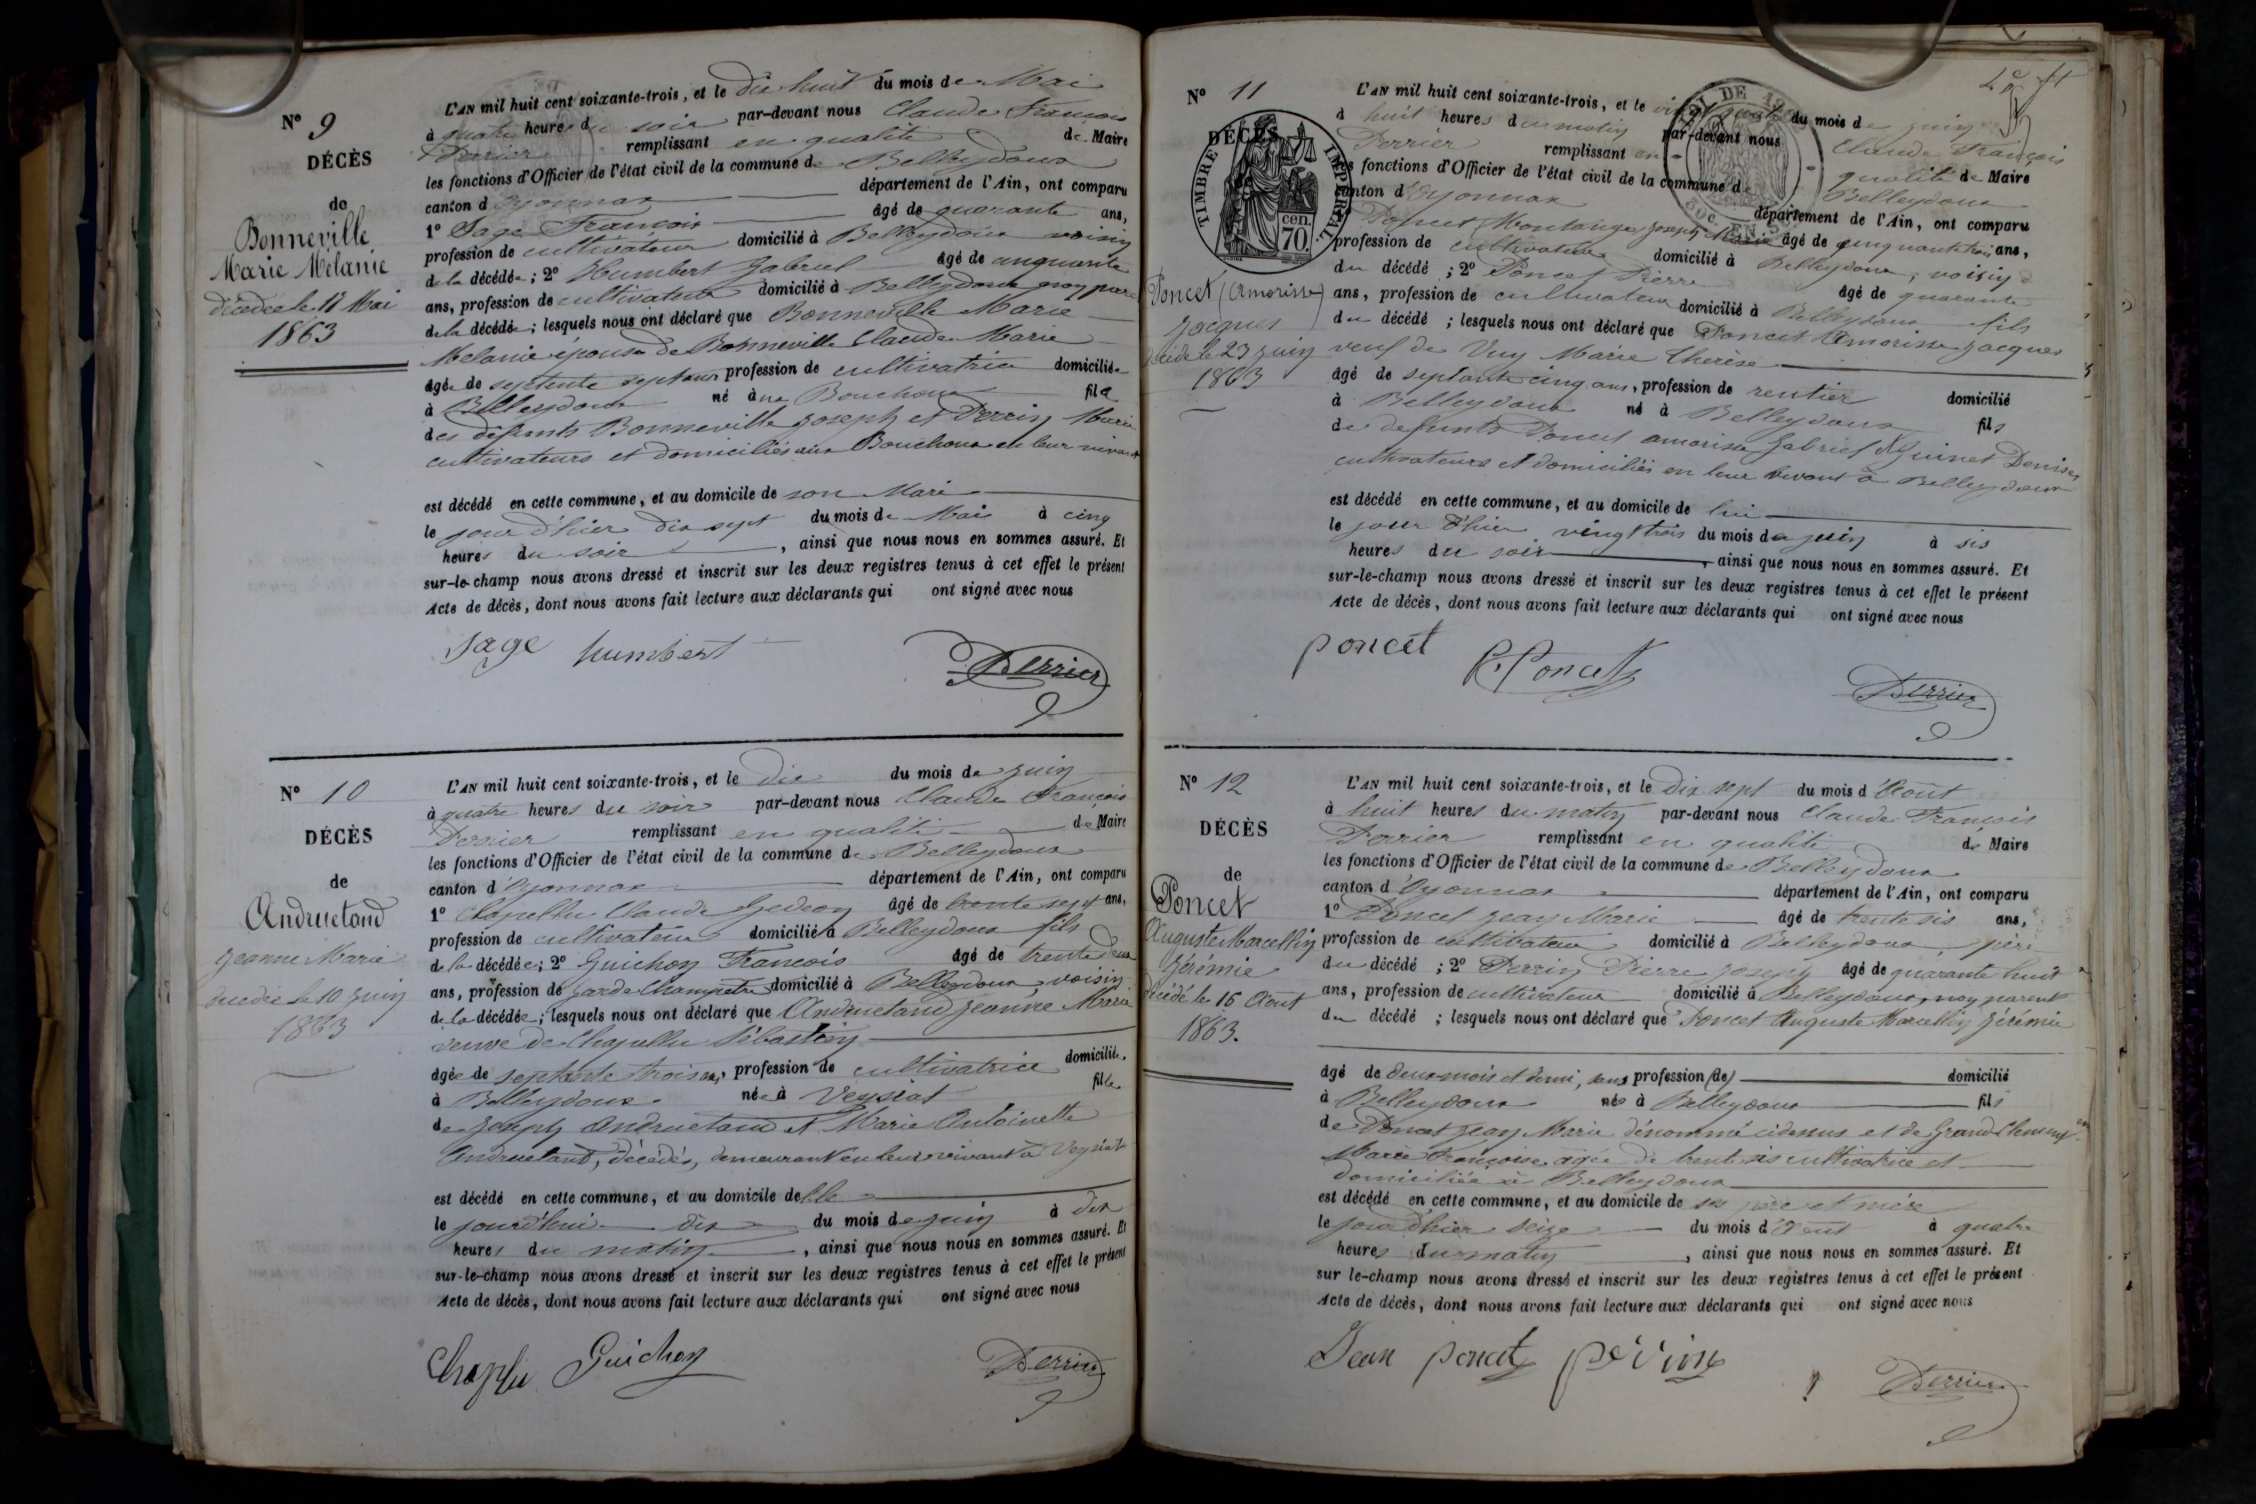 N° 9
DÉCÈS
de
Bonneville
Marie Mélanie
décédée le 17 Mai
1863
L'AN mil huit cent soixante-trois, et le dix huit du mois de Mai
à quatre heures du soir par-devant nous Claude François
Perrier remplissant en qualité de Maire
les fonctions d'Officier de l'état civil de la commune de Belleydoux
canton d'Oyonnax département de l'Ain, ont comparu
1° Sage François âgé de quarante ans,
profession de cultivateur domicilié à Belleydoux voisin
de la décédée; 2° Humbert Gabriel âgé de cinquante
ans, profession de cultivateur domicilié à Belleydoux non parent
de la décédée; lesquels nous ont déclaré que Bonneville Marie
Mélanie épouse de Bonneville Claude Marie
âgée de septente sept ans profession de cultivatrice domiciliée
à Belleydoux né aux Bouchoux fille
des défunts Bonneville Joseph et Perrin Marie
cultivateurs et domiciliés aux Bouchoux en leur vivant
est décédé en cette commune, et au domicile de son Mari
le jour d'hier dix sept du mois de Mai à cinq
heures du soir, ainsi que nous nous en sommes assuré. Et
sur-le-champ nous avons dressé et inscrit sur les deux registres tenus à cet effet le présent
Acte de décès, dont nous avons fait lecture aux déclarants qui ont signé avec nous
Sage humbert Perrier
N° 10
DÉCÈS
de
Andruetand
Jeanne Marie
décédée le 10 Juin
1863
L'AN mil huit cent soixante-trois, et le dix du mois de Juin
à quatre heures du soir par-devant nous Claude François
Perrier remplissant en qualité de Maire
les fonctions d'Officier de l'état civil de la commune de Belleydoux
canton d'Oyonnax département de l'Ain, ont comparu
1° Chapellu Claude Gedeon âgé de trente sept ans,
profession de cultivateur domicilié à Belleydoux fils
de la décédée; 2° Guichon François âgé de trente deux
ans, profession de garde Champetre domicilié à Belleydoux voisin
de la décédée; lesquels nous ont déclaré que Andruetand Jeanne Marie
veuve de Chapellu Sébastien
âgée de septente trois ans, profession de cultivatrice domiciliée
à Belleydoux née à Veyziat fille
de Joseph Andruetand et Marie Antoinette
Andruetand, décédés, demeurant en leur vivant à Veyziat
est décédé en cette commune, et au domicile d'elle
le jourd'hui dix du mois de Juin à dix
heures du matin, ainsi que nous nous en sommes assuré. Et
sur-le-champ nous avons dressé et inscrit sur les deux registres tenus à cet effet le présent
Acte de décès, dont nous avons fait lecture aux déclarants qui ont signé avec nous
Guichon Perrier
N° 11
DÉCÈS
TIMBRE IMPÉRIAL
70 cen.
Poncet (Amorisse)
Jacques
décédé le 23 Juin
1863
L'AN mil huit cent soixante-trois, et le vingt quatre du mois de Juin
à huit heures du matin par-devant nous Claude François
Perrier remplissant en qualité de Maire
les fonctions d'Officier de l'état civil de la commune de Belleydoux
canton d'Oyonnax département de l'Ain, ont comparu
Poncet Montange Joseph Marie âgé de cinquante trois ans,
profession de cultivateur domicilié à Belleydoux, voisin
du décédé; 2° Poncet Pierre âgé de quarante
ans, profession de cultivateur domicilié à Belleydoux fils
du décédé; lesquels nous ont déclaré que Poncet Amorisse Jacques
veuf de Vuy Marie Thérèse
âgé de septante cinq ans, profession de rentier domicilié
à Belleydoux né à Belleydoux fils
de défunts Poncet amorisse Gabriel & Guinet Denise
cultivateurs et domiciliés en leur vivant à Belleydoux
est décédé en cette commune, et au domicile de lui
le jour d'hier vingt trois du mois de Juin à six
heures du soir, ainsi que nous nous en sommes assuré. Et
sur-le-champ nous avons dressé et inscrit sur les deux registres tenus à cet effet le présent
Acte de décès, dont nous avons fait lecture aux déclarants qui ont signé avec nous
poncet P. Poncet Perrier
N° 12
DÉCÈS
de
Poncet
Auguste Marcellin
Jérémie
décédé le 16 Août
1863.
L'AN mil huit cent soixante-trois, et le dix sept du mois d'Août
à huit heures du matin par-devant nous Claude François
Perrier remplissant en qualité de Maire
les fonctions d'Officier de l'état civil de la commune de Belleydoux
canton d'Oyonnax département de l'Ain, ont comparu
1° Poncet Jean Marie âgé de trente six ans,
profession de cultivateur domicilié à Belleydoux père
du décédé; 2° Perrin Pierre Joseph âgé de quarante huit
ans, profession de cultivateur domicilié à Belleydoux, non parent
du décédé; lesquels nous ont déclaré que Poncet Auguste Marcellin Jérémie
âgé de deux mois et demi, sans profession (de) domicilié
à Belleydoux né à Belleydoux fils
de Poncet Jean Marie dénommé cidessus et de Grand Clement
Marie Françoise âgée de trente six cultivatrice et
domiciliée à Belleydoux
est décédé en cette commune, et au domicile de ses père et mère
le jour d'hier seize du mois d'Août à quatre
heures du matin, ainsi que nous nous en sommes assuré. Et
sur le-champ nous avons dressé et inscrit sur les deux registres tenus à cet effet le présent
Acte de décès, dont nous avons fait lecture aux déclarants qui ont signé avec nous
Jean poncet Perrier